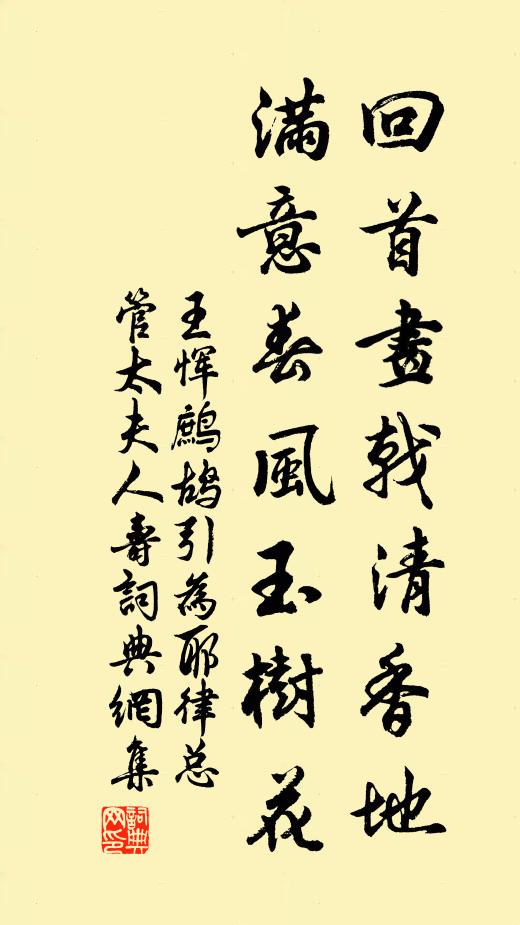 回首畫戟清香地
滿意春風玉樹花
王惲鷓鴣引為耶律总
管太夫人壽詞典網集
詞典
网印